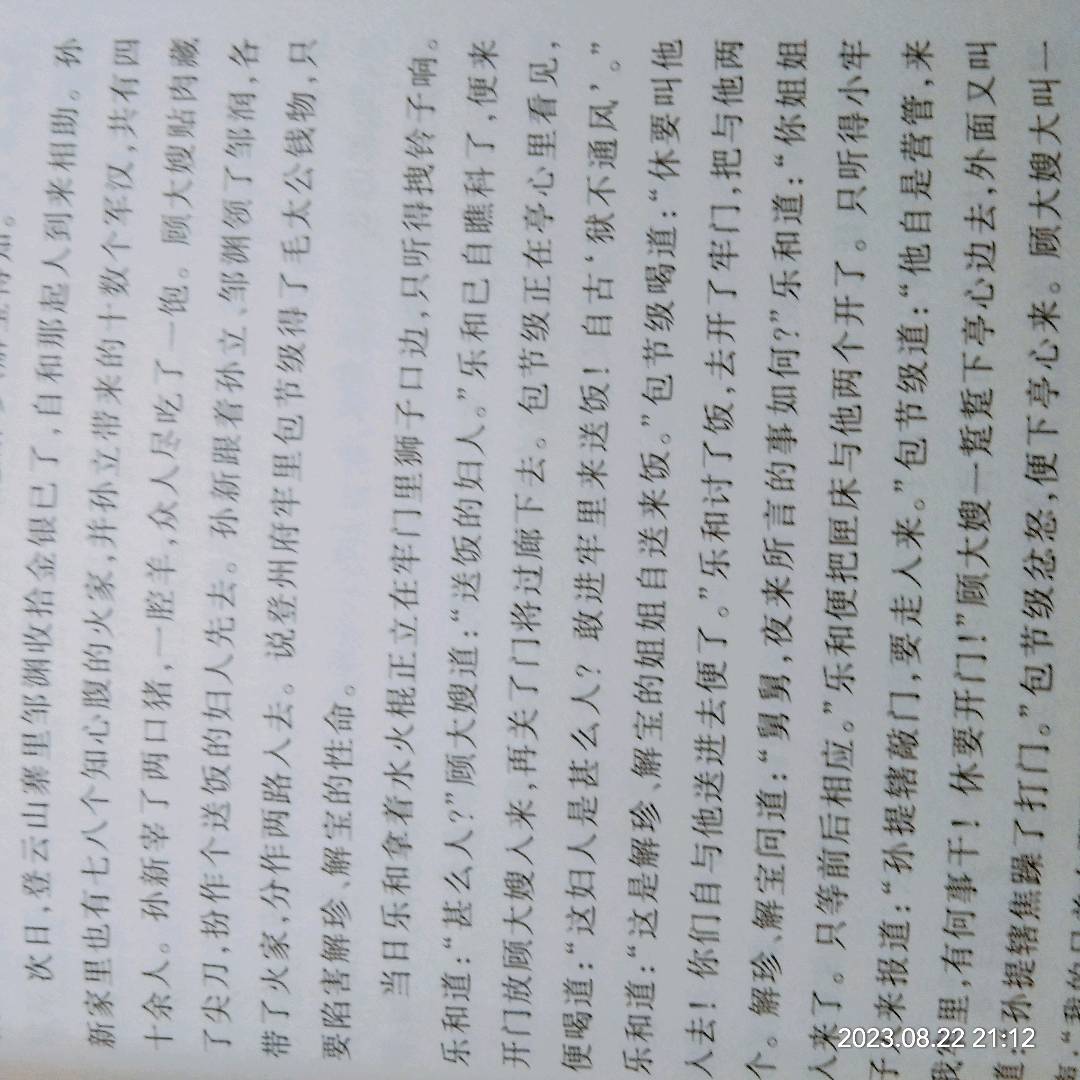 次日，登云山寨里邹渊收拾金银已了，自和那起人到来相助。孙
新家里也有七八个知心腹的火家，并孙立带来的十数个军汉，共有四
十余人。孙新宰了两口猪，一腔羊，众人尽吃了一饱。顾大嫂贴肉藏
了尖刀，扮作个送饭的妇人先去。孙新跟着孙立、邹渊领了邹润，各
带了火家，分作两路入去。说登州府牢里包节级得了毛太公钱物，只
要陷害解珍、解宝的性命。
当日乐和拿着水火棍正立在牢门里狮子口边，只听得拽铃子响。
乐和道：“甚么人？”顾大嫂道：“送饭的妇人。”乐和已自瞧科了，便来
开门放顾大嫂入来，再关了门将过廊下去。包节级正在亭心里看见，
便喝道：“这妇人是甚么人？敢进牢里来送饭！自古‘狱不通风’。”
乐和道：“这是解珍、解宝的姐姐自送来饭。”包节级喝道：“休要叫他
入去！你们自与他送进去便了。”乐和讨了饭，去开了牢门，把与他两
个。解珍、解宝问道：“舅舅，夜来所言的事如何？”乐和道：“你姐姐
入来了。只等前后相应。”乐和便把匣床与他两个开了。只听得小牢
子入来报道：“孙提辖敲门，要走入来。”包节级道：“他自是营管，来
我牢里，有何事干！休要开门！”顾大嫂一踅踅下亭心边去，外面又叫
道：“孙提辖焦躁了打门。”包节级忿怒，便下亭心来。顾大嫂大叫一
2023.08.22 21:12